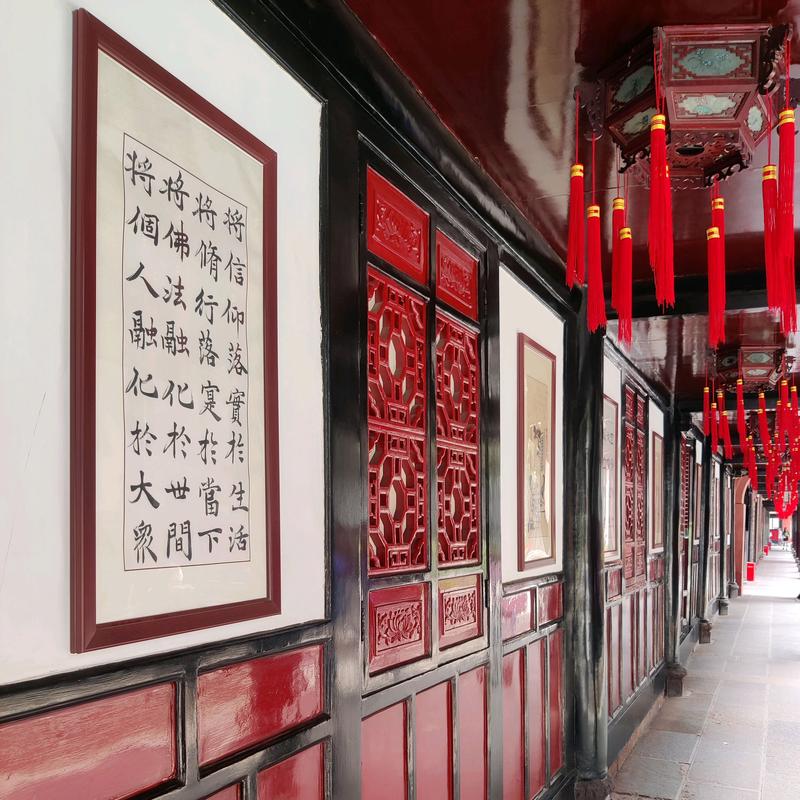 將信仰落實於生活
將脩行落寔於當下
將佛法融化於世間
將個人融化於大眾